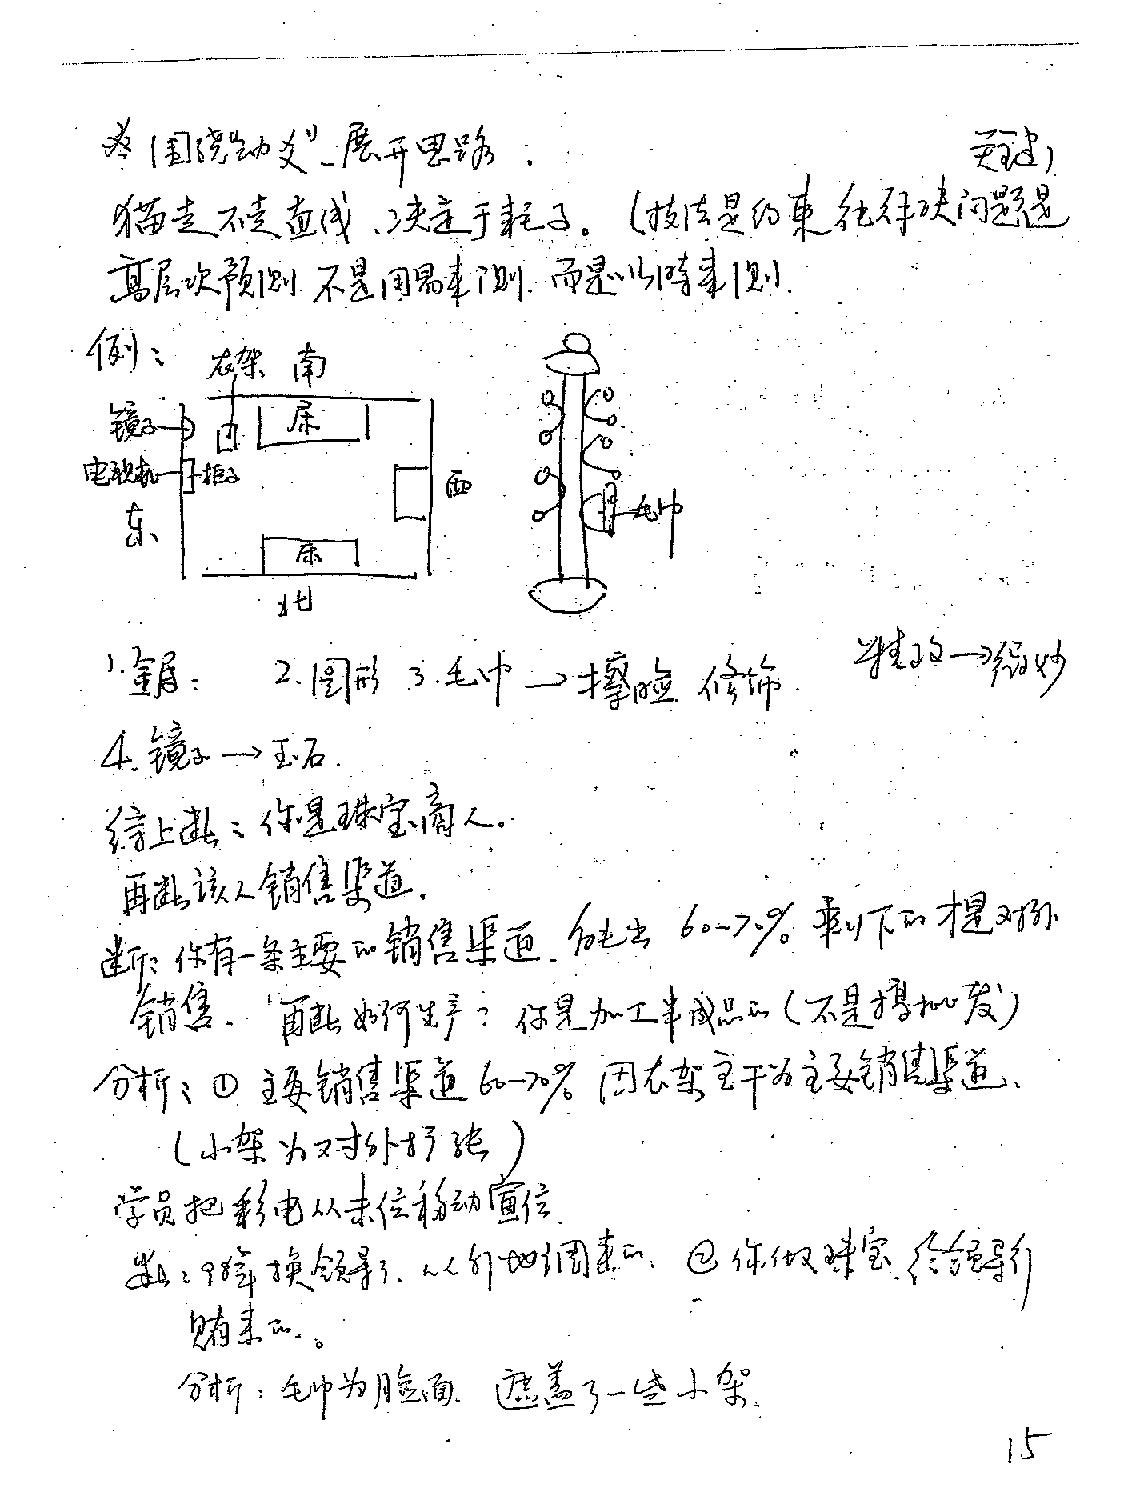 ※围绕“动爻”展开思路.
猫走不走直线、决定于耗子。(技法是约束 往往解决问题是
高层次预测 不是用易来测.而是以时来测.
例:
衣架 南
镜子 床
电视机 柜子 西
毛巾
东
床
北
1.金属: 2.图形 3.毛巾→擦脸 修饰
精改→绝妙
4.镜子→玉石.
综上断:你是珠宝商人。
再断该人销售渠道.
断:你有一条主要的销售渠道.能走出60-70%剩下的才是对外
销售. 再断如何生产:你是加工半成品的(不是搞批发)
分析:① 主要销售渠道60-70% 因衣架主干为主要销售渠道.
(小架为对外扩张)
学员把彩电从未位移动寅位
断:98年换领导了.从外地调来的. ②你做珠宝.给领导行
贿来的.。
分析:毛巾为脸面.遮盖了一些小架.
15